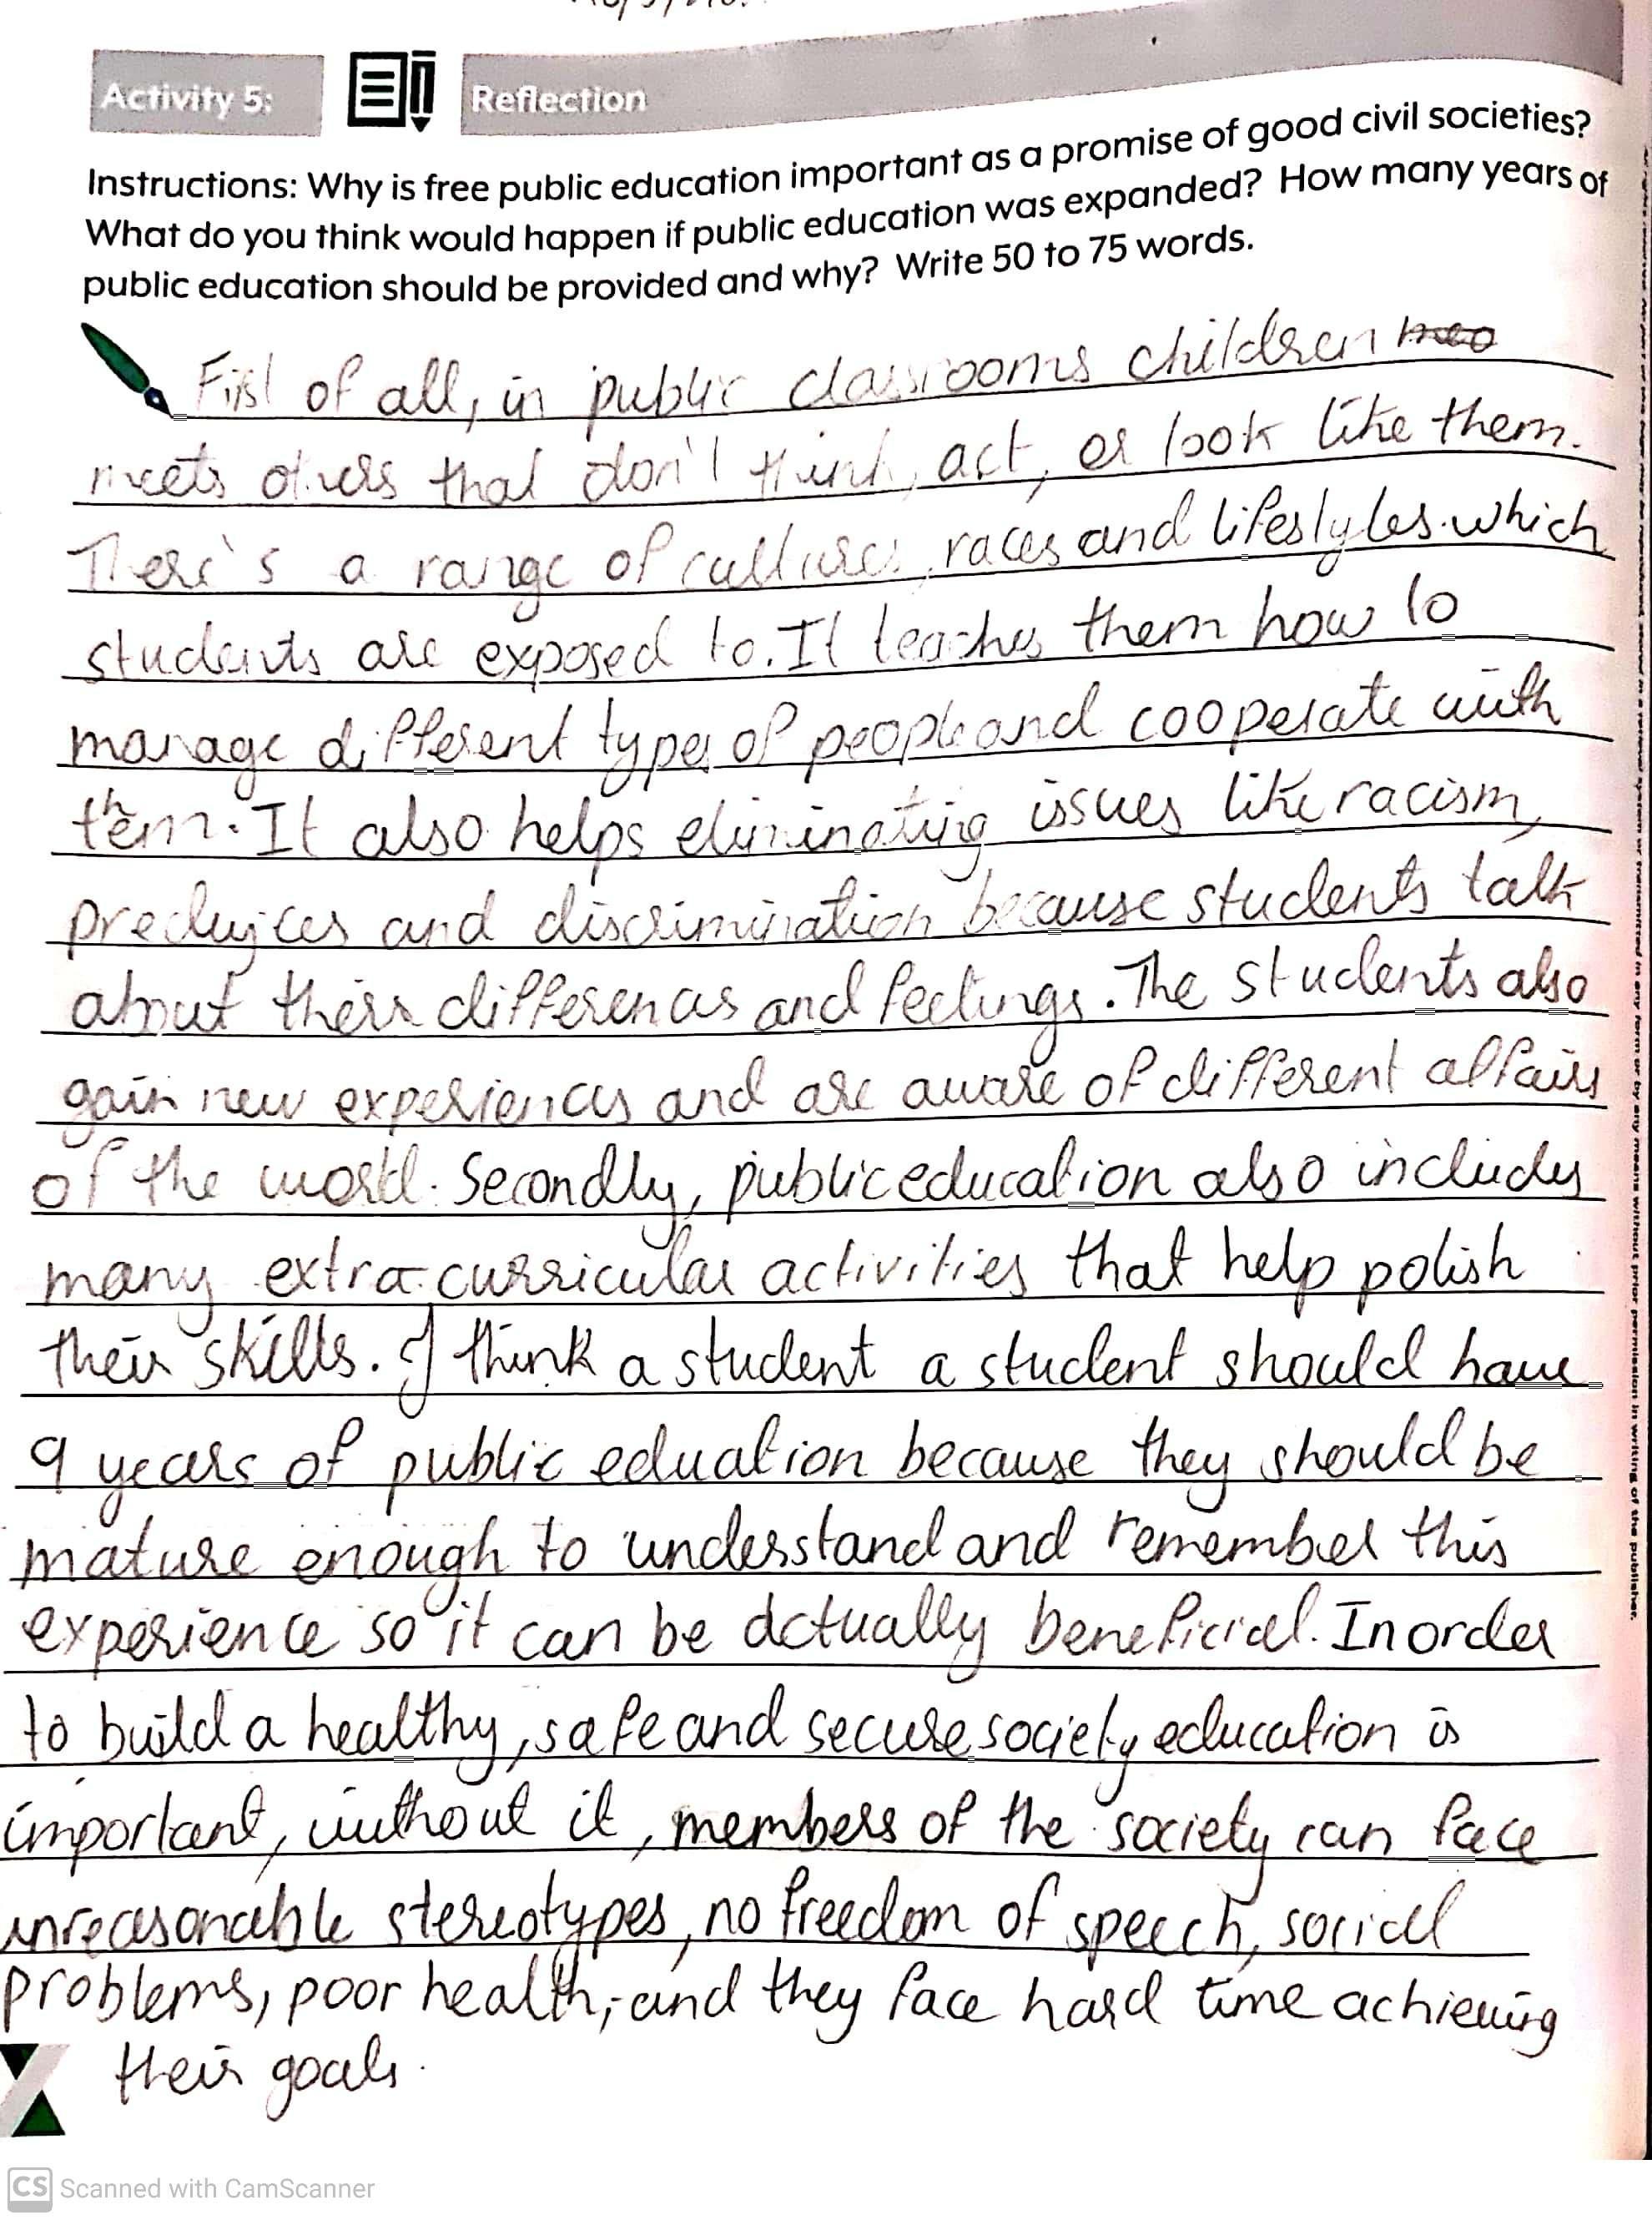 Activity 5:
Reflection
Instructions: Why is free public education important as a promise of good civil societies?
What do you think would happen if public education was expanded? How many years of
public education should be provided and why? Write 50 to 75 words.
First of all, in public classrooms children
meets others that don't think, act, or look like them.
There's a range of cultures, races and lifestyles which
students are exposed to. It teaches them how to
manage different types of people and cooperate with
them. It also helps eliminating issues like racism,
predujices and discrimination because students talk
about their differences and feelings. The students also
gain new experiences and are aware of different affairs
of the world. Secondly, public education also includes
many extra-curricular activities that help polish
their skills. I think a student a student should have
9 years of public eduation because they should be
mature enough to understand and remember this
experience so it can be actually beneficial. In order
to build a healthy, safe and secure society education is
important, without it, members of the society can face
unreasonable stereotypes, no freedom of speech, social
problems, poor health, and they face hard time achieving
their goals.
CS Scanned with CamScanner